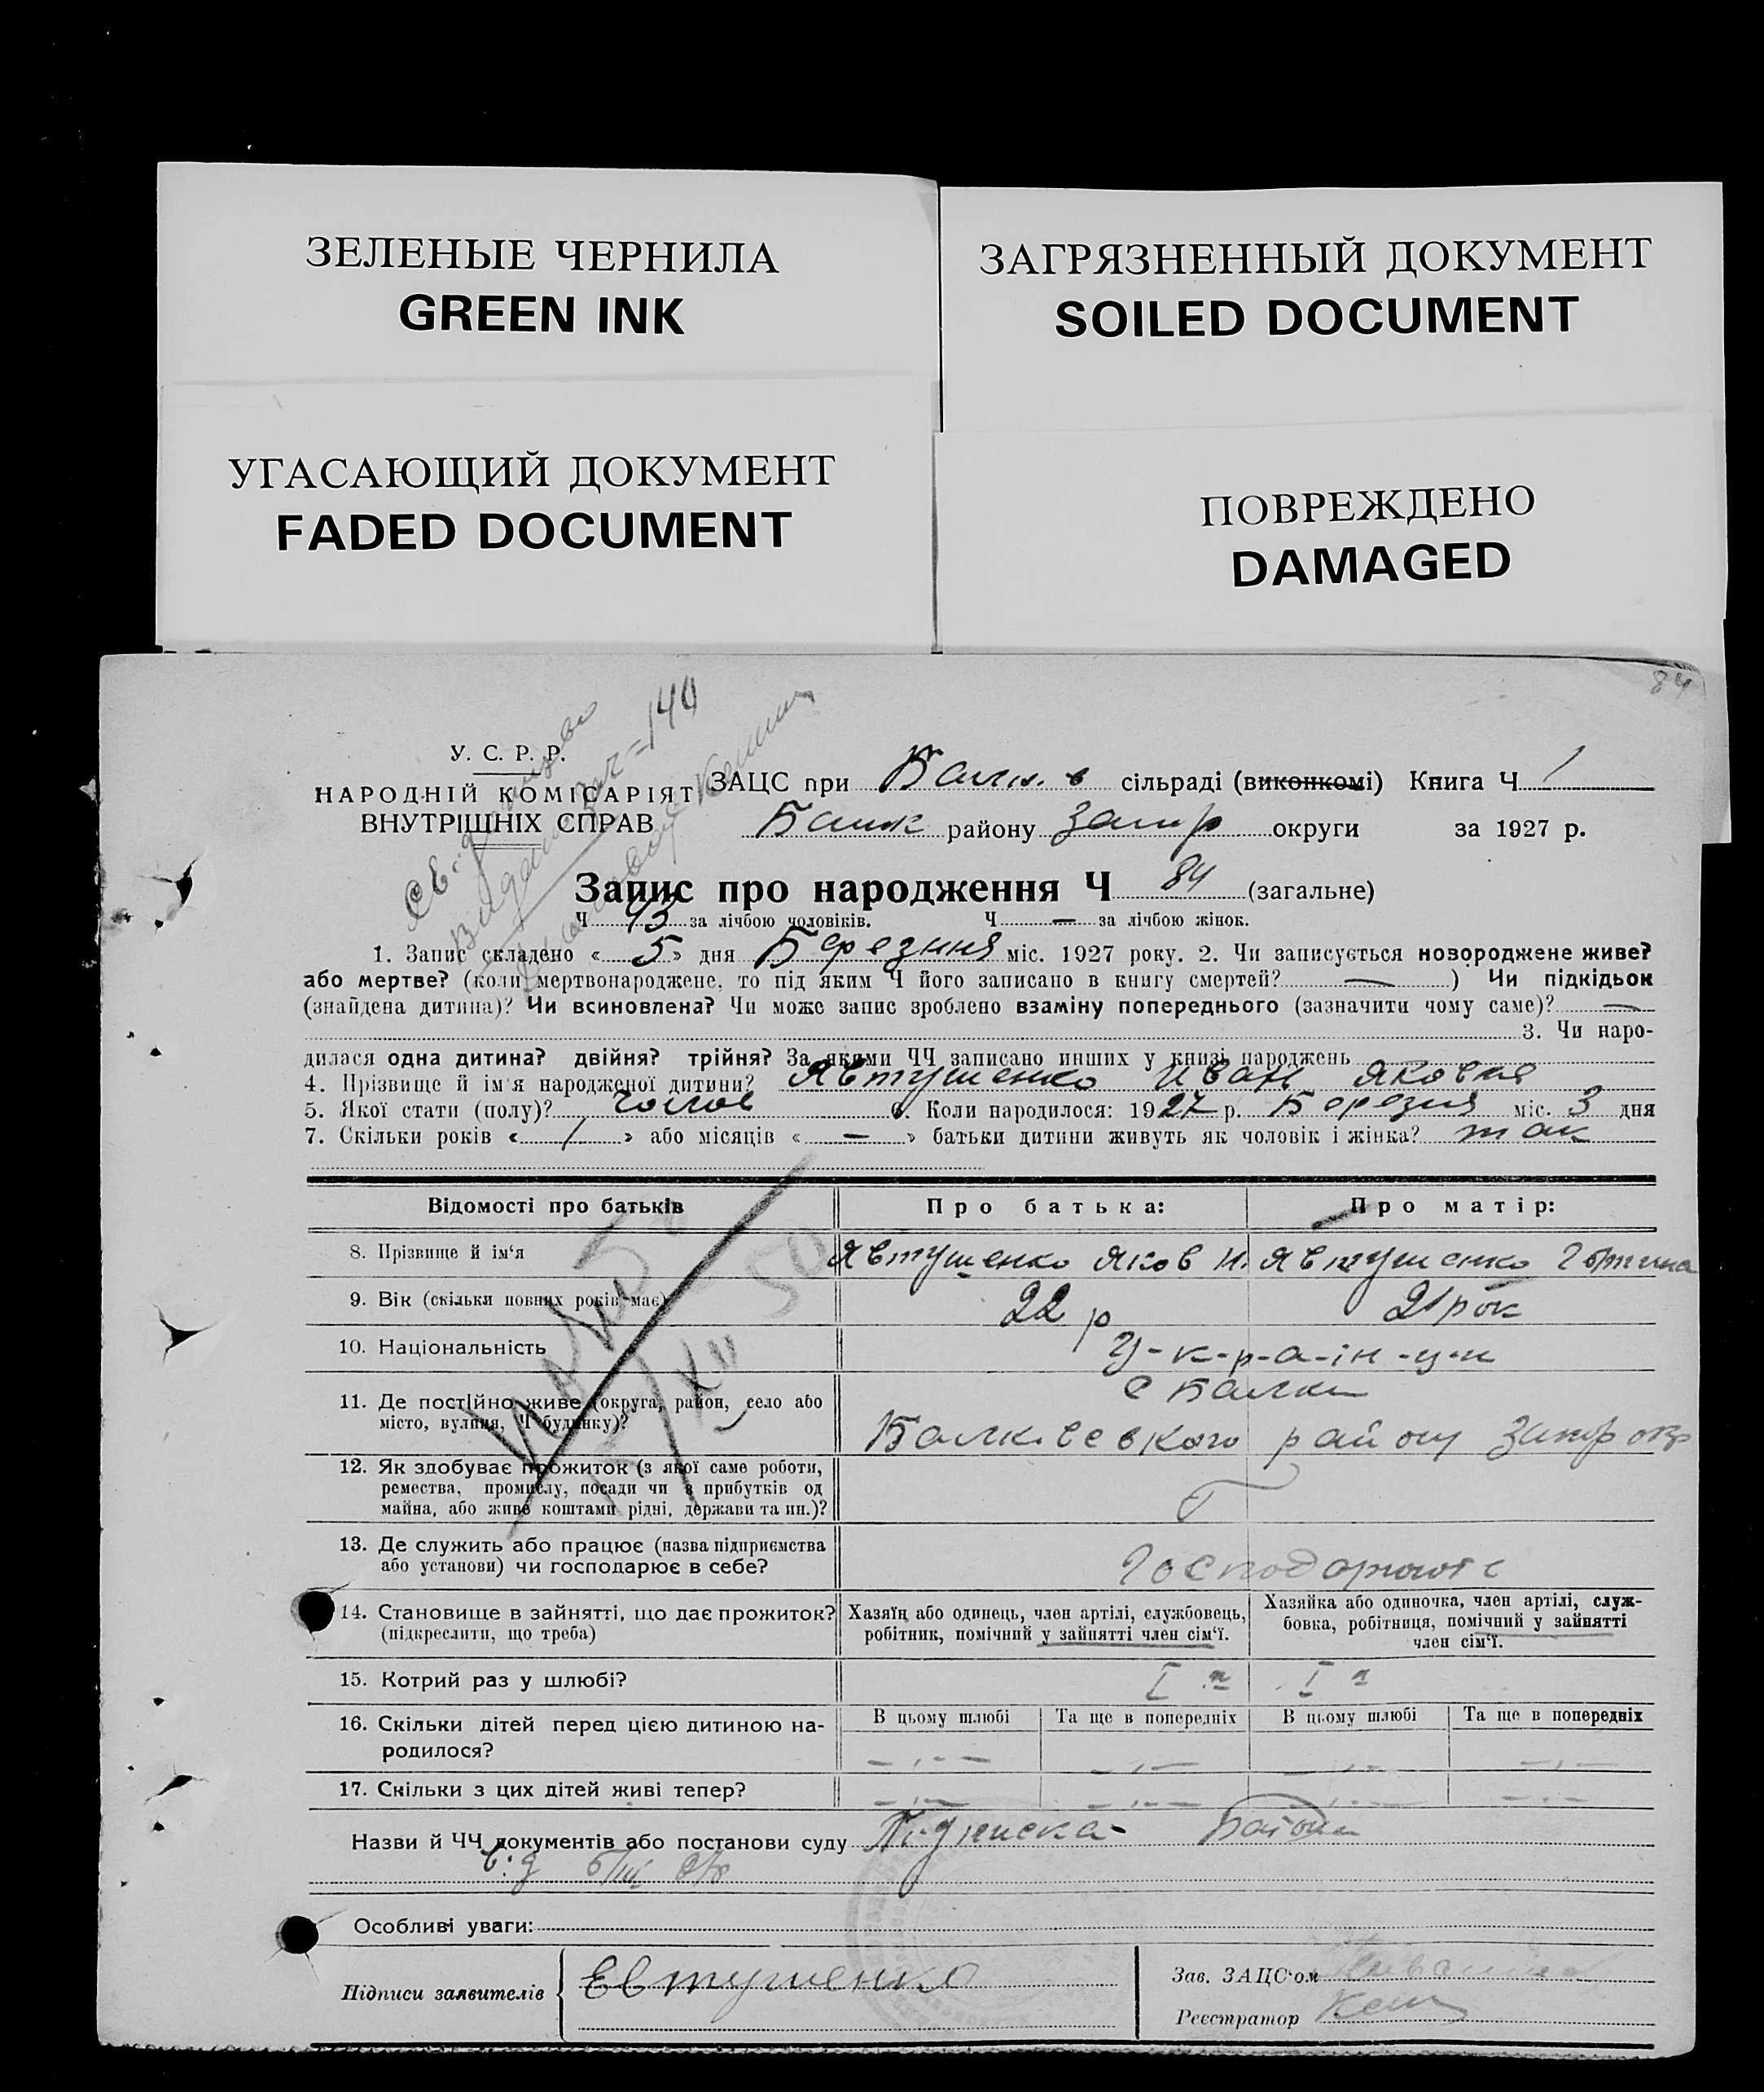 ЗЕЛЕНЫЕ ЧЕРНИЛА
GREEN INK
ЗАГРЯЗНЕННЫЙ ДОКУМЕНТ
SOILED DOCUMENT
УГАСАЮЩИЙ ДОКУМЕНТ
FADED DOCUMENT
ПОВРЕЖДЕНО
DAMAGED
84
У. С. Р. Р.
НАРОДНІЙ КОМІСАРІЯТ
ВНУТРІШНІХ СПРАВ
ЗАЦС при сільраді (виконкомі) Книга Ч 1
району Запор округи за 1927 р.
Запис про народження Ч 84 (загальне)
Ч 43 за лічбою чоловіків. Ч — за лічбою жінок.
1. Запис складено « 5 » дня Березния міс. 1927 року. 2. Чи записується новороджене живе?
або мертве? (коли мертвонароджене, то під яким Ч його записано в книгу смертей? — ) Чи підкідьок
(знайдена дитина)? Чи всиновлена? Чи може запис зроблено взаміну попереднього (зазначити чому саме)? —
3. Чи наро-
дилася одна дитина? двійня? трійня? За якими ЧЧ записано инших у книзі народжень
4. Прізвище й ім'я народженої дитини? Явтушенко Иван Яковля
5. Якої стати (полу)? чолов 6. Коли народилося: 1927 р. Березня міс. 3 дня
7. Скільки років « 1 » або місяців « — » батьки дитини живуть як чоловік і жінка? так
Відомості про батьків
Про батька:
Про матір:
8. Прізвище й ім'я
Явтушенко Яков И.
Явтушенко
9. Вік (скільки повних років має)
22 р
21 рок
10. Національність
У-к-р-а-ін-ц-и
11. Де постійно живе (округа, район, село або
місто, вулиця, Ч будинку)?
с Балки
району Запор окр
12. Як здобуває прожиток (з якої саме роботи,
ремества, промислу, посади чи з прибутків од
майна, або живе коштами рідні, держави та ин.)?
13. Де служить або працює (назва підприємства
або установи) чи господарює в себе?
14. Становище в зайнятті, що дає прожиток?
(підкреслити, що треба)
Хазяїн або одинець, член артілі, службовець,
робітник, помічний у зайнятті член сім'ї.
Хазяйка або одиночка, член артілі, служ-
бовка, робітниця, помічний у зайнятті
член сім'ї.
15. Котрий раз у шлюбі?
I й
I й
16. Скільки дітей перед цією дитиною на-
родилося?
В цьому шлюбі
Та ще в попередніх
В цьому шлюбі
Та ще в попередніх
17. Скільки з цих дітей живі тепер?
Назви й ЧЧ документів або постанови суду Підписка
Особливі уваги:
Підписи заявителів
Евтушенко
Зав. ЗАЦС'ом
Реєстратор